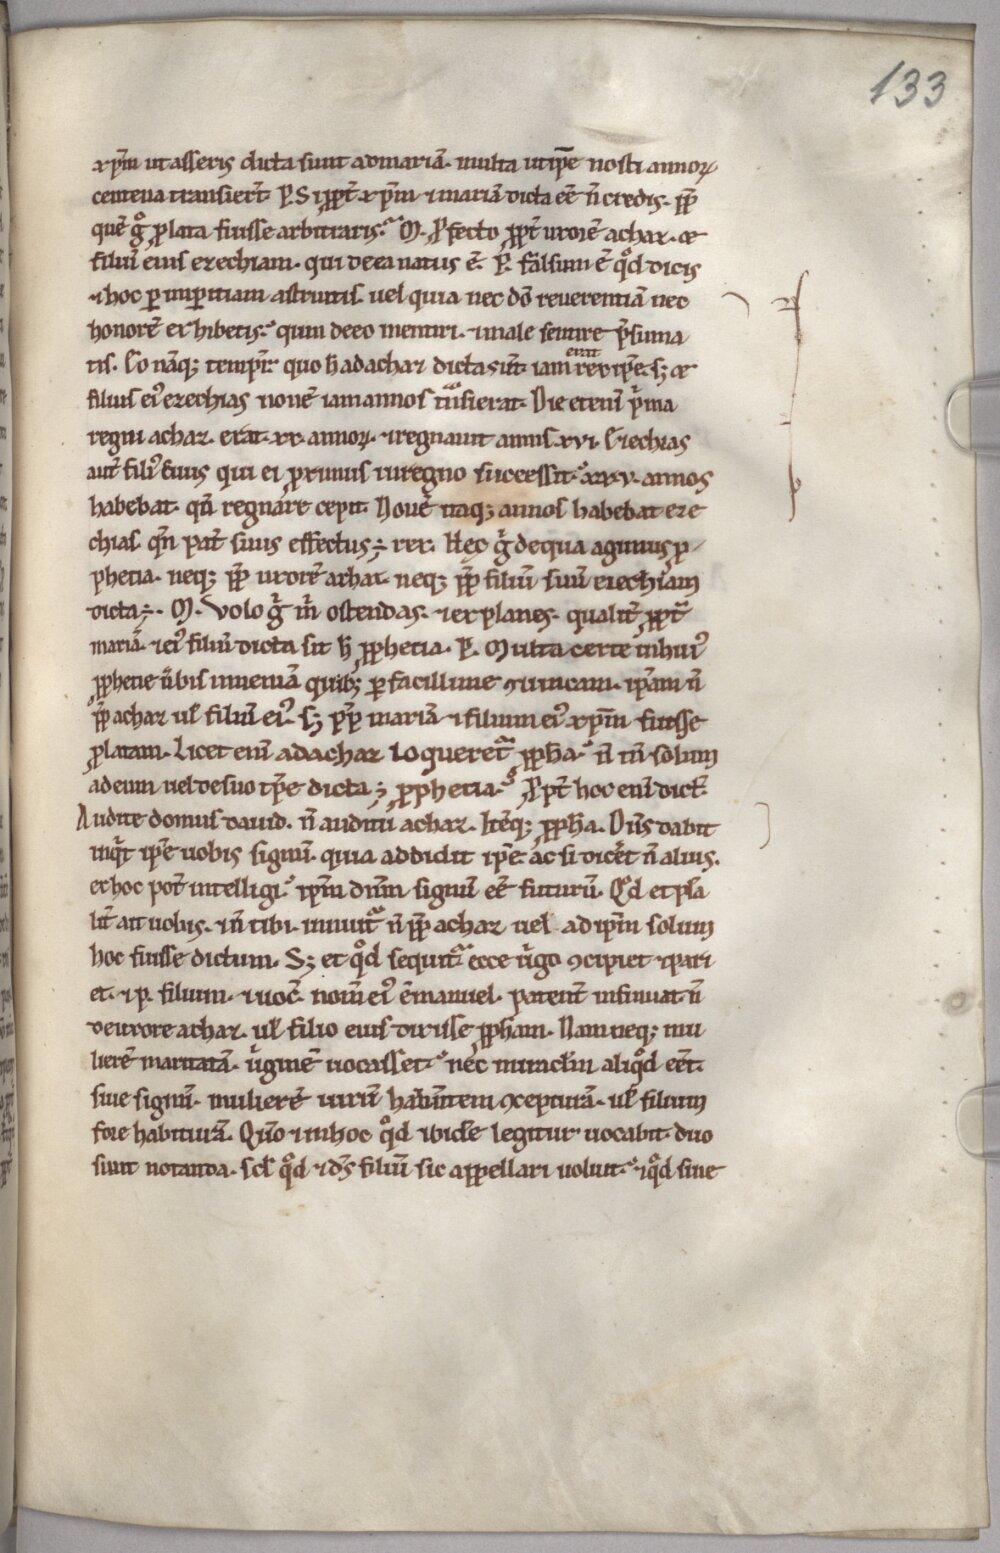 133
xp̄m ut asseris dicta sunt ad mariā. multa ut ip̄e nosti annoꝝ
centena transier̄t. P. Si ꝓpt̄ xp̄m ⁊ mariā dicta eē n̄ credis. ꝓp̄
quē gͦ ꝓlata fuisse arbitraris.ᷣ M. ꝓfecto ꝓpt̄ uxorē achaz. ⁊
filiū eius ezechiam. qui de ea natus ē. P. Falsum ē qͦd dicis
⁊ hoc ꝑ imꝑitiam astruitis. uel quia nec dō reuerentiā nec
honorē exhibetis. quin de eo mentiri. ⁊ male sentire p̄suma
tis. Eo nāq; tempr̄e quo h̄ ad achaz dicta sūt. iam rex ip̄e erat s; ⁊
filius ei᾽ ezechias nonē iam annos tᷓnsierat. Die etenī pͥma
regni achaz. erat .xx. annoꝝ. ⁊ regnauit annis .xvi. Ezechias
aūt fili᾽ eius qui ei ꝓximus in regno successit. xxv. annos
habebat. qn̄ regnare cepit. Nouē itaq; annos habebat eze
chias. qn̄ pat̄ suus effectus ÷ rex. Hęc gͥ de qua agimus ꝓ
phetia. neq; ꝓp̄ uxorē achaz. neq; ꝓp̄ filiū suū ezechiam
dicta ÷. M. Volo gͥ m̄ ostendas. ⁊ explanes. qualit̄ ꝓpt̄
mariā. ⁊ ei᾽ filiū dicta sit h̄ ꝓphetia. P. Multa certe in hui᾽
ꝓphetie ūbis inueniā quib; ꝑfacillime ꝯuincam. ip̄am n̄
ꝓp̄ achaz ul̄ filiū ei᾽. s; ꝓp̄ mariā ⁊ filium ei᾽ xp̄m fuisse
ꝓlatam. Licet enī ad achaz loqueretᷣ ꝓph̄a. n̄ tn̄ solum
ad eum uel de suo tp̄e dicta ÷ ꝓphetia. ꝓpt̄ hoc enī dict̄.
Audite domus dauid. n̄ auditū achaz. Itēq; ꝓph̄a. Dn̄s dabit
inqͥt ip̄e uobis signū. quia addidit ip̄e. ac si dicēt n̄ alius.
et hoc pot̄ intelligi. ip̄m dn̄m signū eē futurū. Qͦd et plͣa
lit̄ ait uobis. ⁊ n̄ tibi. innuitᷣ n̄ ꝓp̄ achaz uel ad ip̄m solum
hoc fuisse dictum. S; et qͦd sequitᷣ. ecce uͥgo ꝯcipiet ⁊ pari
et. ⁊ p. filium. ⁊ uoc̄. nom̄ ei᾽ ēmanuel. patent̄ insinuat. n̄
de uxore achaz. ul̄ filio eius dixisse ꝓph̄am. Nam neq; mu
lierē maritatā. uͥginē uocasset. nec miracl̄m aliqͦd eēt.
siue signū. mulierē uirū habentem ꝯcepturā. ul̄ filium
fore habiturā. Qm̄o ⁊ in hoc qͦd ibidē legitur uocabit. duo
sunt notanda. scl̄ qͦd ⁊ ds̄ filiū sic appellari uoluit. ⁊ qͦd siue